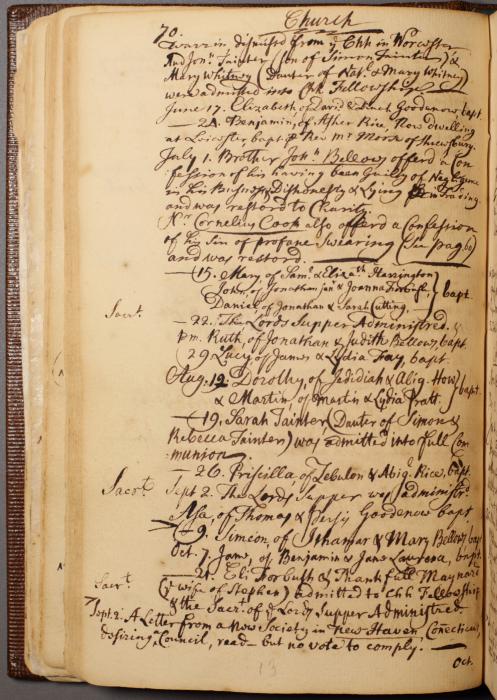 70. Church
Warrin dismised from ye Chh in Worcester
And Jonn Tainter (Son of Simon Tainter) &
Mary Whitney (Dauter of Natl & Mary Whitney)
were admitted into Chh Fellowship
June 17. Elizabeth, of David & Goodenow, bapt.
— 24. Benjamin, of Asher Rice, Now dwelling
at Leicester, bapt p Rev Mr Morse of Shrewsbury.
July 1. Brother Jonn Bellows offerd a Con
fession of his having been Guilty of Negligence
in his Business, Dishonesty & Lying in Trading.
and was restord to Charity.
Cornelius Cook also offerd a Confession
of his Sin of profane Swearing (See pag 6)
and was restord.
— 15. Mary of Saml & Elizath Harrington
John, of Jonathan junr & Joanna Forbush,
Daniel, of Jonathan & Sarah Cutting, } bapt.
Sacrt. — 22. The Lords Supper Administred. &
pm. Ruth, of Jonathan & Judith Bellows, bapt
29. Lucy, of James & Lydia Fay, bapt.
Aug. 12 Dorothy, of Jedidiah & Abig. How
& Martin, of Martin & Lydia Pratt. } bapt.
— 19. Sarah Tainter (Dauter of Simon &
Rebecca Tainter) was admitted into full Com
munion.
— 26. Priscilla, of Zebulon & Abigl Rice, bapt.
Sacrt. Sept 2. The Lords Supper was administrd
Asa, of Thomas & Persis Goodenow bapt
— 9. Simeon, of Ithamar & Mary Bellows, bap
Oct. 7. Jane, of Benjamin & Jane Laurena, bapt.
— 21. Eli Forbush & Thankfull Maynard
Sacrt. (ye wife of Stephen) admitted to Chh Fellowship
& the Sacrt. of ye Lords Supper Administred
Sept. 2. A Letter from a New Society in New Haven, Conecticut,
desiring a Council, read — but no vote to comply. —
Oct.
13